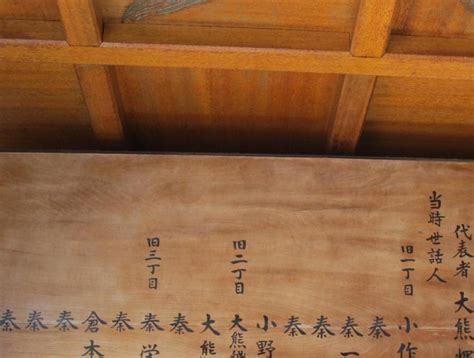 代表者 大熊
当時世話人
旧一丁目 小作
秦
秦一
秦
秦
小野
旧二丁目 大熊
大
秦
旧三丁目 秦
秦
倉本
秦
秦
秦